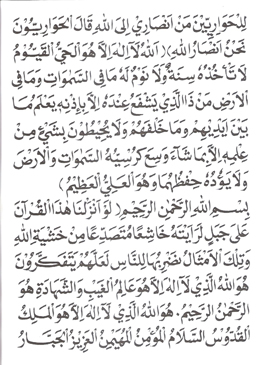 لِلْحَوَارِيّٖنَ مَنْ اَنْصَارٖى اِلَى اللّٰهِ قَالَ الْحَوَارِيُّونَ
نَحْنُ اَنْصَارُ اللّٰهِ) (اَللّٰهُ لَا اِلٰهَ اِلَّا هُوَ اَلْحَىُّ الْقَيُّومُ
لَا تَاْخُذُهُ سِنَةٌ وَلَا نَوْمٌ لَهُ مَا فِى السَّمٰوَاتِ وَمَا فِى
الْاَرْضِ مَنْ ذَا الَّذٖى يَشْفَعُ عِنْدَهُ اِلَّا بِاِذْنِهٖ يَعْلَمُ مَا
بَيْنَ اَيْدٖيهِمْ وَمَا خَلْفَهُمْ وَلَا يُحٖيطُونَ بِشَىْءٍ مِنْ
عِلْمِهٖ اِلَّا بِمَا شَاءَ وَسِعَ كُرْسِيُّهُ السَّمٰوَاتِ وَالْاَرْضَ
وَلَا يَؤُدُهُ حِفْظُهُمَا وَهُوَ الْعَلِىُّ الْعَظٖيمُ)
بِسْمِ اللّٰهِ الرَّحْمٰنِ الرَّحٖيمِ (لَوْ اَنْزَلْنَا هٰذَا الْقُرْاٰنَ
عَلٰى جَبَلٍ لَرَاَيْتَهُ خَاشِعًا مُتَصَدِّعًا مِنْ خَشْيَةِ اللّٰهِ
وَتِلْكَ الْاَمْثَالُ نَضْرِبُهَا لِلنَّاسِ لَعَلَّهُمْ يَتَفَكَّرُونَ
هُوَ اللّٰهُ الَّذٖى لَا اِلٰهَ اِلَّا هُوَ عَالِمُ الْغَيْبِ وَالشَّهَادَةِ هُوَ
الرَّحْمٰنُ الرَّحٖيمُ. هُوَ اللّٰهُ الَّذٖى لَا اِلٰهَ اِلَّا هُوَ اَلْمَلِكُ
الْقُدُّوسُ السَّلَامُ الْمُؤْمِنُ الْمُهَيْمِنُ الْعَزٖيزُ الْجَبَّارُ